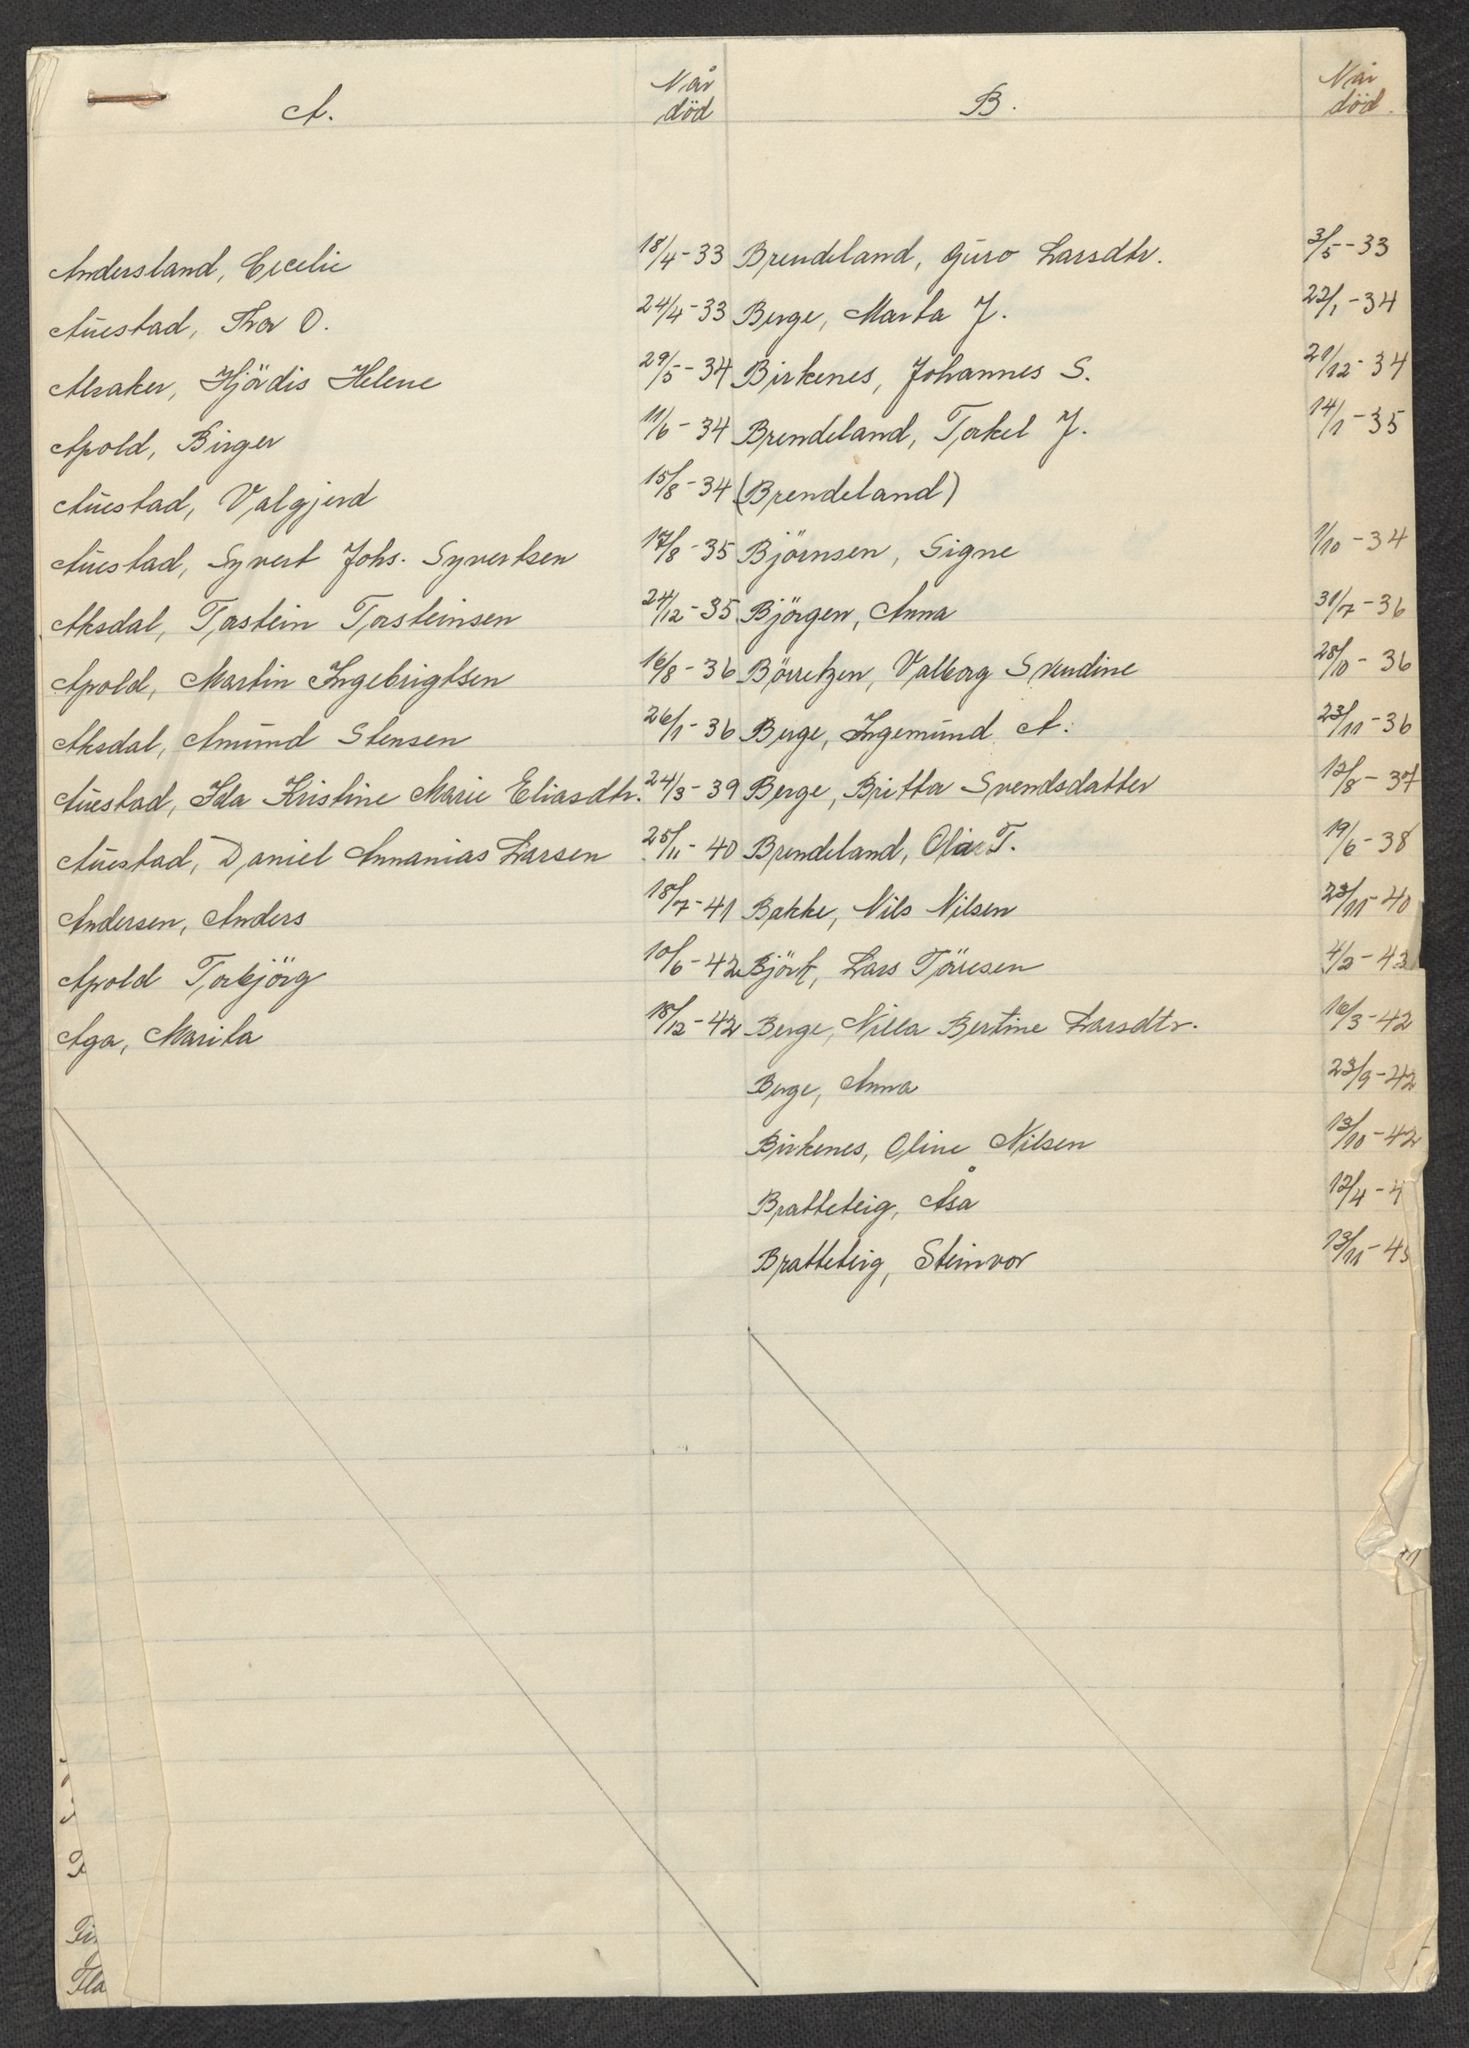 A. Når død B. Når død.
Andersland, Cecelie 18/4-33 Brendeland, Guro Larsdtr. 3/5-33
Auestad, Thor O. 24/4-33 Berge, Marta J. 22/1-34
Alsaker, Hjördis Helene 29/5-34 Birkenes, Johannes S. 21/12-34
Apold, Birger 11/6-34 Brendeland, Torkel J. 14/1-35
Auestad, Valgjerd 15/8-34 (Brendeland)
Auestad, Syvert Johs. Syvertsen 17/8-35 Björnsen, Signe 1/10-34
Aksdal, Torstein Torsteinsen 24/12-35 Björgen, Anna 31/7-36
Apold, Martin Ingebrigtsen 16/8-36 Börretzen, Valborg Svendine 28/10-36
Aksdal, Amund Stensen 26/1-36 Berge, Ingemund A. 23/11-36
Auestad, Ida Kristine Marie Eliasdtr. 24/3-39 Berge, Britta Svendsdatter 12/8-37
Auestad, Daniel Annanias Larsen 25/11-40 Brendeland, T. 19/6-38
Andersen, Anders 18/7-41 Bakke, Nils Nilsen 23/11-40
Apold Torbjörg 10/6-42 Björk, Lars Töresen 4/2-43
Aga, Marita 18/12-42 Berge, Nilla Bertine Larsdtr. 16/3-42
Berge, Anna 23/9-42
Birkenes, Oline Nilsen 13/10-42
Bratteteig, Åsa 12/4-4
Bratteteig, Steinvor 13/11-43